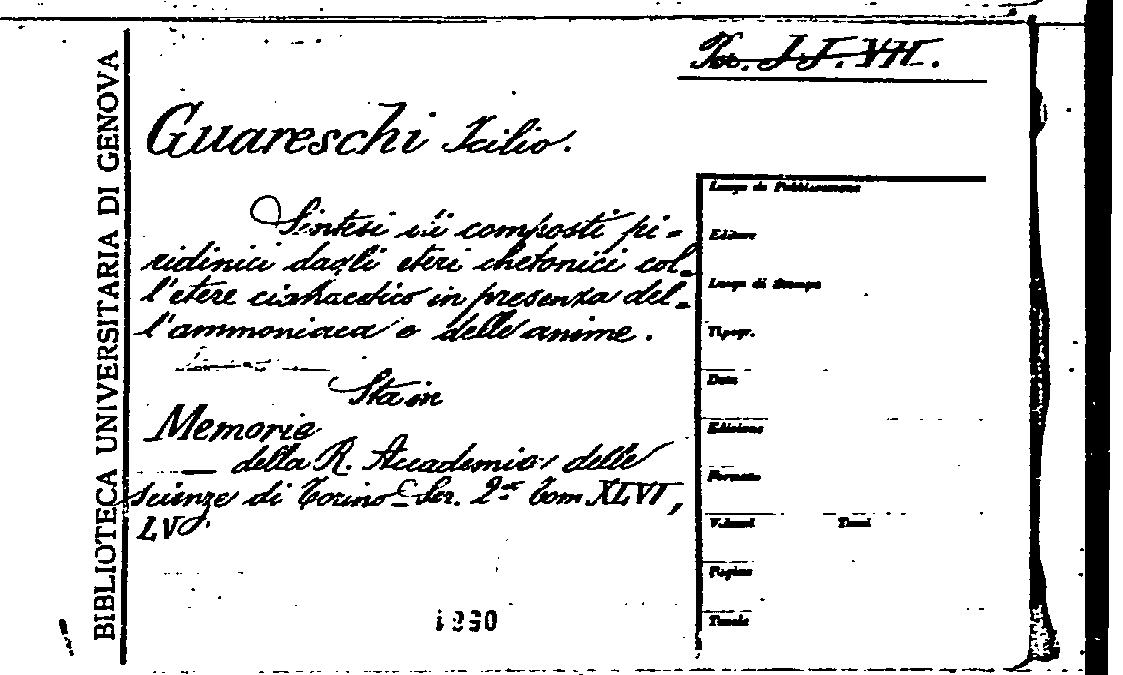 BIBLIOTECA UNIVERSITARIA DI GENOVA
Guareschi Icilio.
Sintesi di composti pi-
ridinici dagli eteri chetonici col-
l'etere cianacetico in presenza del-
l'ammoniaca e delle amine.
Sta in
Memorie
della R. Accademia delle
scienze di Torino - Ser. 2ª Tom XLVI,
LV.
Luogo di Pubblicazione
Editore
Luogo di Stampa
Tipogr.
Data
Edizione
Formato
Volumi Tomi
Pagine
Tavole